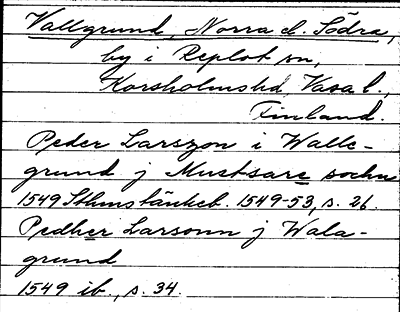 Vallgrund, Norra o. Södra,
by i Replot sn,
Korsholms hd, Vasa l.,
Finland.
Peder Larszon i Walle-
grund j Mustsare sochn
1549 Sthms tänkeb. 1549-53, s. 26.
Pedher Larsonn j Wala-
grund
1549 ib., s. 34.